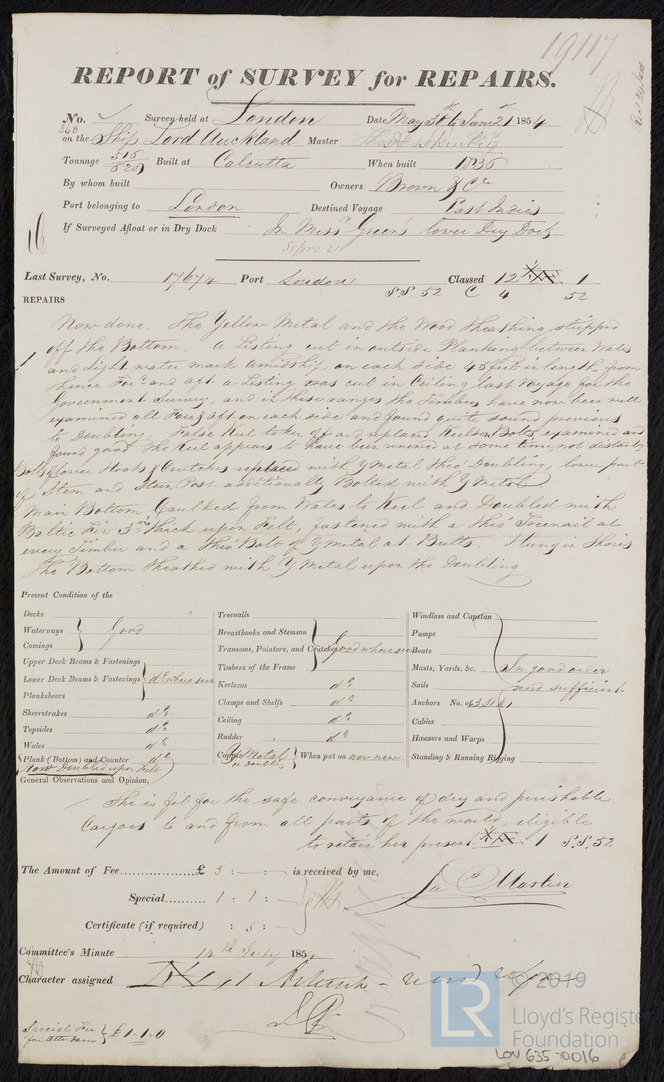 19117
REPORT of SURVEY for REPAIRS.
No. 360 Survey held at London Date May 30th June 21st 1854
on the Ship Lord Auckland Master
Tonnage 516 628 Built at Calcutta When built 1836
By whom built Owners Brown & Co
Port belonging to London Destined Voyage East Indies
If Surveyed Afloat or in Dry Dock In Messrs Green's lower Dry Dock
Last Survey, No. 17674 Port London Classed 12 1
S.S. 52 C 4 52
REPAIRS
Now done. The Yellow Metal and the Wood Sheathing stripped
off the Bottom. A Listing cut in outside Planking between Wales
and Light water mark amidships on each side 45 feet in length from
thence Ford and aft a Listing was cut in Ceiling last Voyage for the
Government Survey, and in these ranges the Timbers have now been well
examined all Fore & aft on each side and found quite sound previous
to Doubling. False Keel taken off and replaced Keelson Bolts examined and
found good The Keel appears to have been renewed at some time not distant
Bolts Hooks & Crutches replaced with Y Metal thro' Doubling, lower part
of Stem and Stern Post additionally Bolted with Y Metal
Main Bottom Caulked from Wales to Keel and Doubled with
Baltic Fir 3 ins thick upon Felt, fastened with a thro' Treenail at
every Timber and a thro' Bolt of Y Metal at Butts.
The Bottom Sheathed with Y Metal upon the Doubling
Present Condition of the
Decks
Waterways Good
Comings
Upper Deck Beams & Fastenings
Lower Deck Beams & Fastenings do where seen
Planksheers
Sheerstrakes do
Topsides do
Wales do
Plank (Bottom) and Counter do
Now Doubled upon Felt
Treenails
Breasthooks and Stemson
Transoms, Pointers, and Crutches Good where seen
Timbers of the Frame
Keelsons do
Clamps and Shelfs do
Ceiling do
Rudder do
Copper Y Metal on Doubling When put on now new
Windlass and Capstan
Pumps
Boats
Masts, Yards, &c. In good order
Sails and sufficient
Anchors No. of
Cables
Hawsers and Warps
Standing & Running Rigging
General Observations and Opinion,
She is fit for the safe conveyance of dry and perishable
Cargoes to and from all parts of the world, eligible
to retain her present 1 S.S. 52
The Amount of Fee £ 3 : - : - is received by me,
Special 1 : 1 : - Jas Martin
Certificate (if required) : 5 : -
Committee's Minute 14th July 1854
Character assigned
Special Fee for attendance } £1.1.0
LR © 2019
Lloyd's Register
Foundation
LON 635-0016